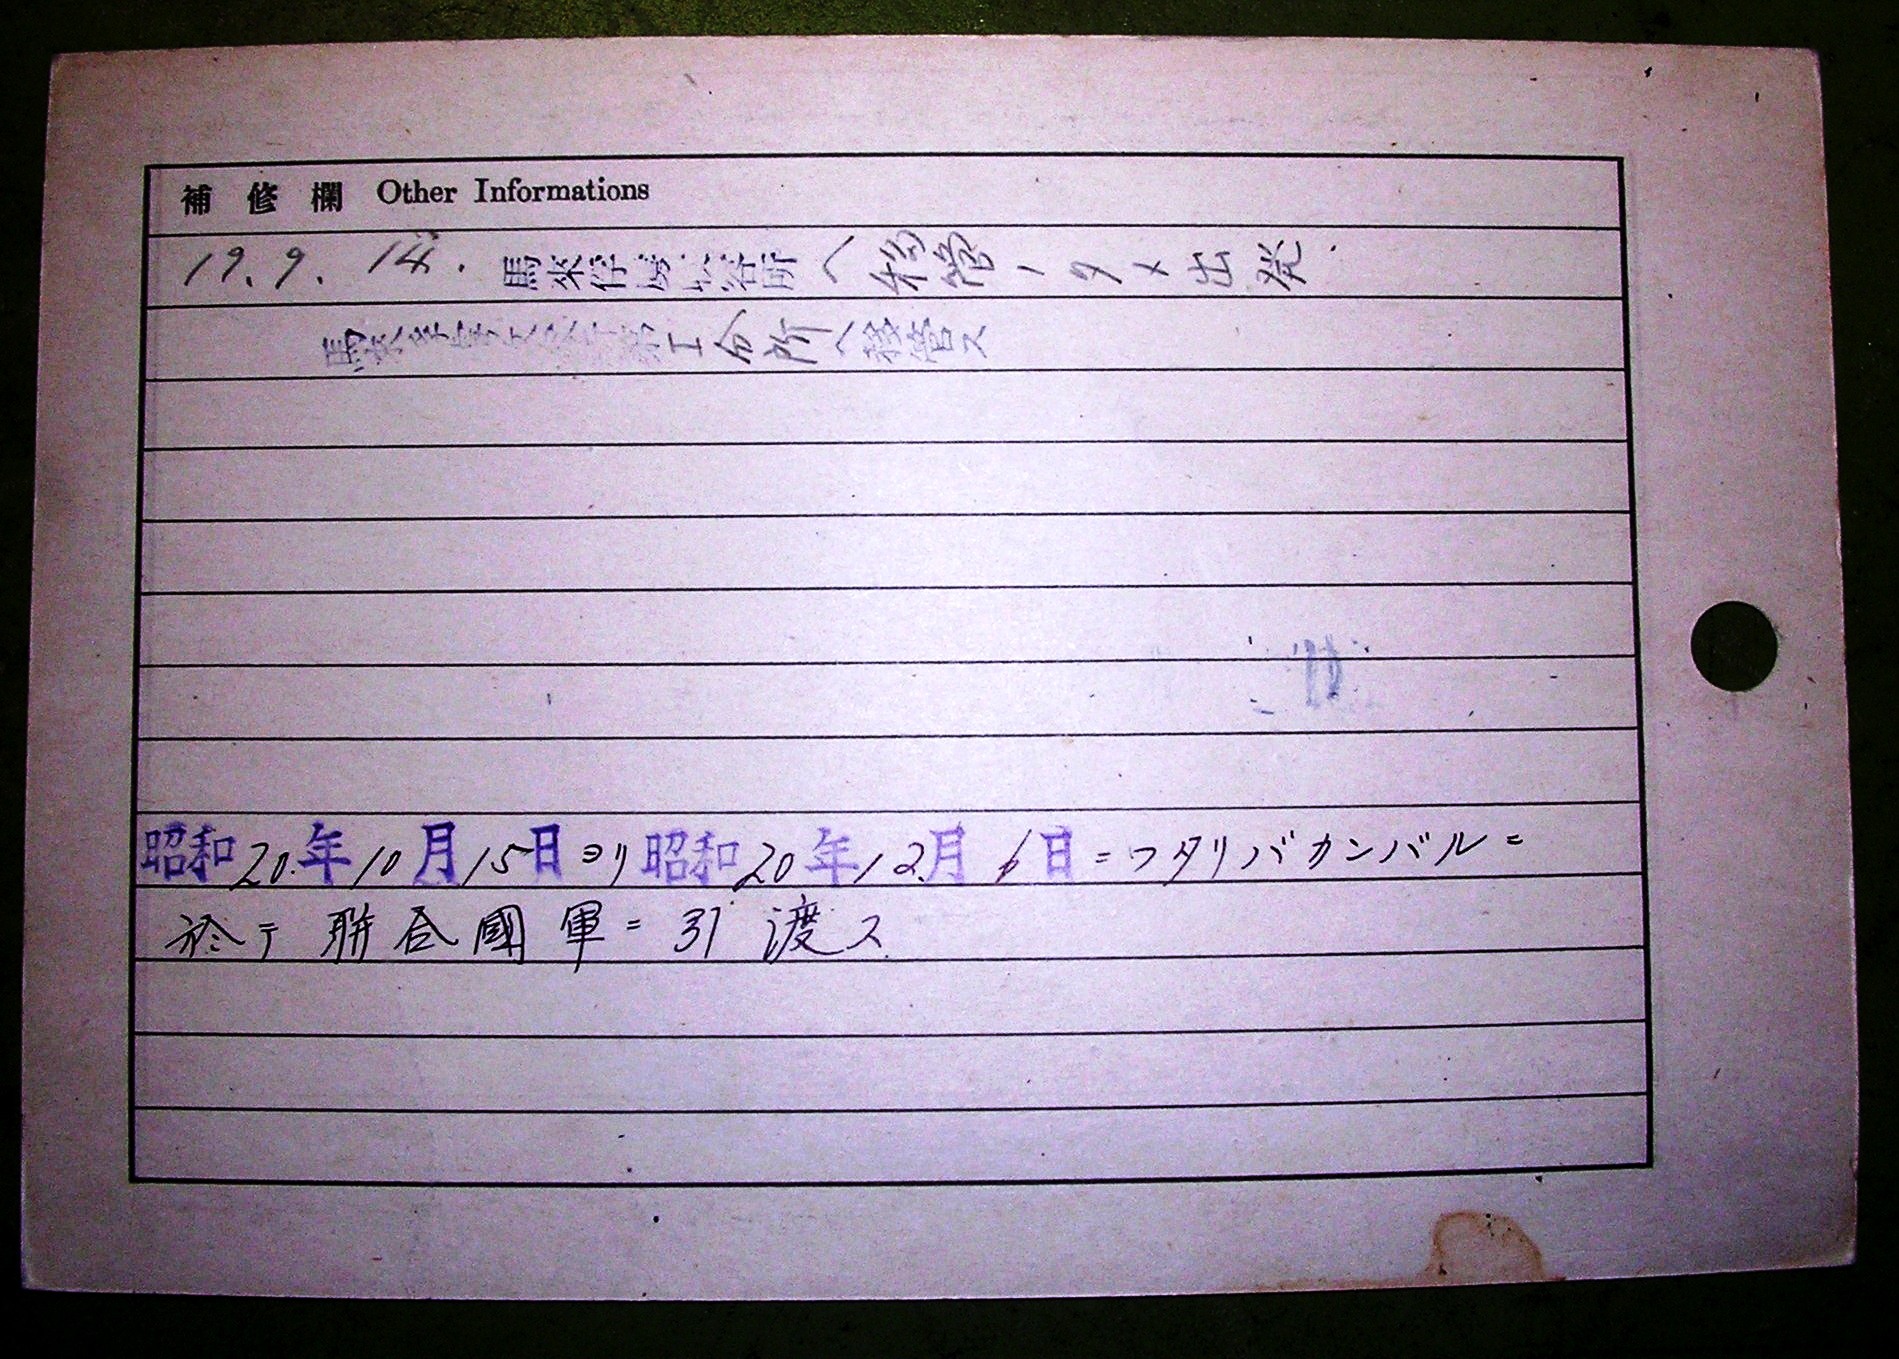 補修欄 Other Informations
19.9.14. 馬来俘虜収容所ヘ移管ノタメ出発.
馬来俘虜収容所第工分所ヘ移管ス
昭和20.年10月15日ヨリ昭和20年12月6日ニワタリバカンバルニ
於テ聯合國軍ニ引渡ス